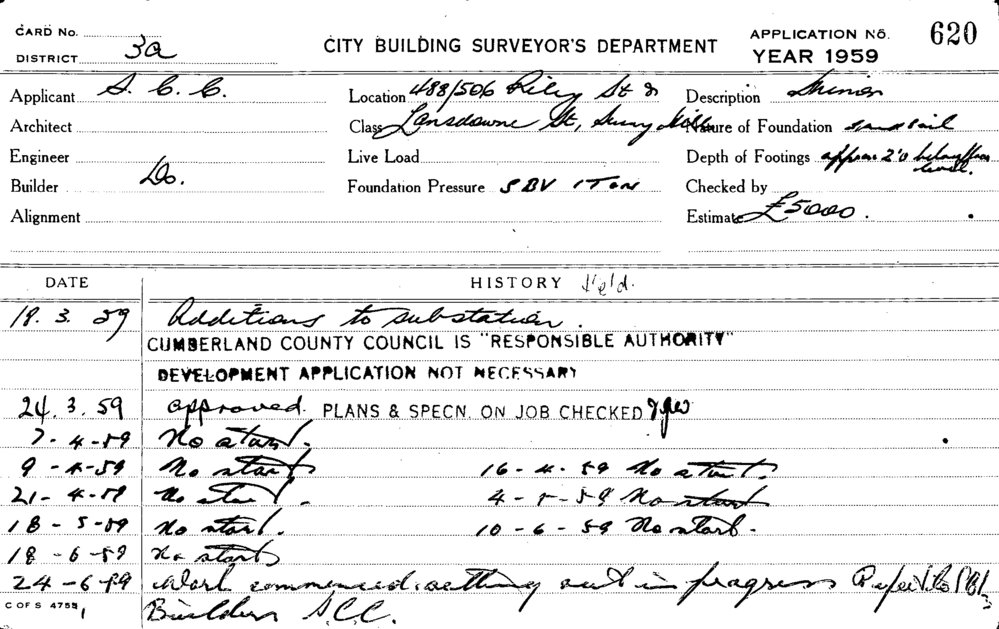 CARD No.
DISTRICT 3a
CITY BUILDING SURVEYOR'S DEPARTMENT
APPLICATION No.
YEAR 1959
620
Applicant S. C. C.
Location 488/506 Riley St &
Description
Architect
Class Lansdowne St, Surry Hills
Nature of Foundation sand soil
Engineer
Live Load
Depth of Footings approx 2'0 below floor level.
Builder Do.
Foundation Pressure SBV 1 TON
Checked by
Alignment
Estimate £5000.
DATE
HISTORY
18. 3. 59 Additions to substation.
CUMBERLAND COUNTY COUNCIL IS "RESPONSIBLE AUTHORITY"
DEVELOPMENT APPLICATION NOT NECESSARY
24. 3. 59 approved. PLANS & SPECN. ON JOB CHECKED
7-4-59 No start.
9-4-59 No start 16-4-59 No start.
21-4-59 No start. 4-5-59 No start
18-5-59 No start. 10-6-59 No start.
18-6-59 No start
24-6-59 Work commenced setting out in progress
C OF S 4755
Builders S.C.C.